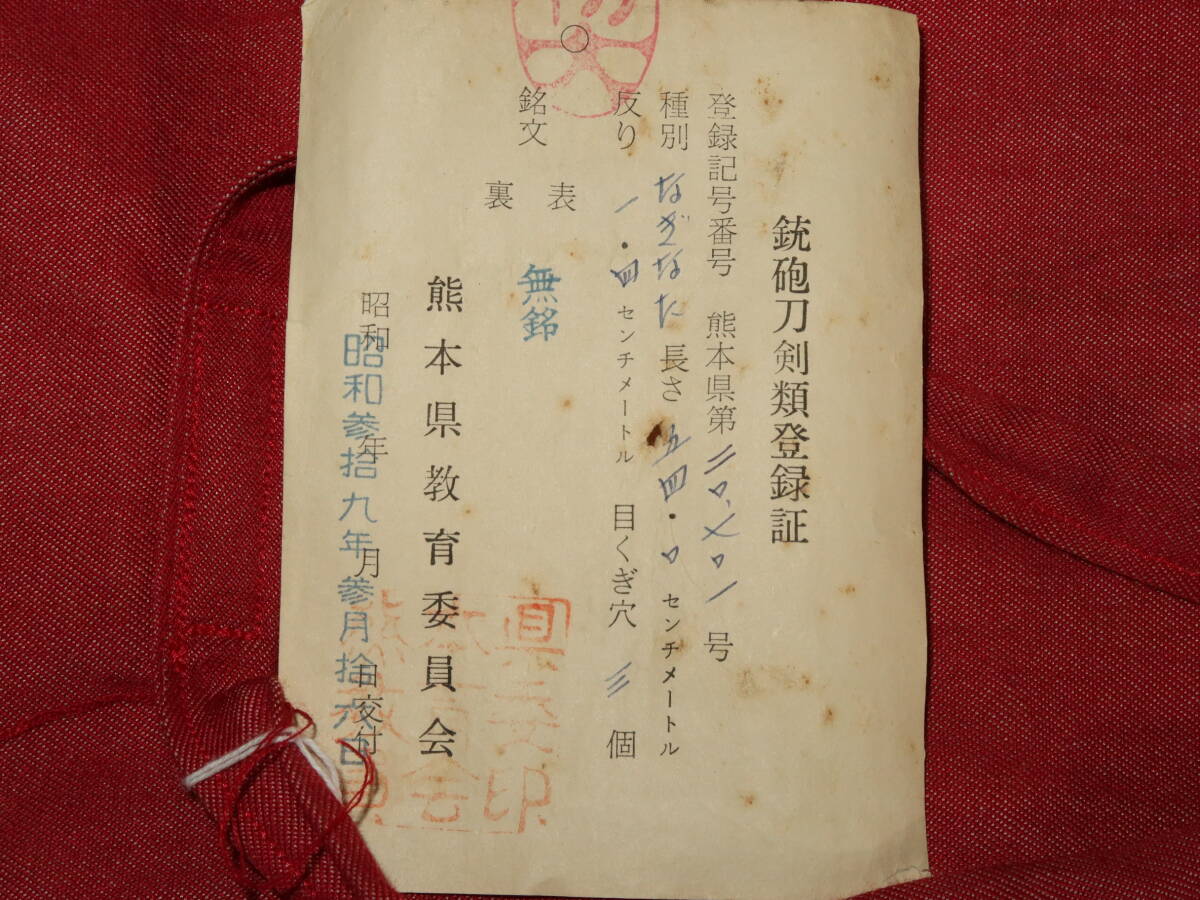 銃砲刀剣類登録証
登録記号番号 熊本県第号
種別 なぎなた 長さ 五四・〇 センチメートル
反り 一・四 センチメートル 目くぎ穴 三 個
銘文 表 無銘
裏
熊本県教育委員会
昭和 年 月 日交付
昭和参拾九年参月拾六日